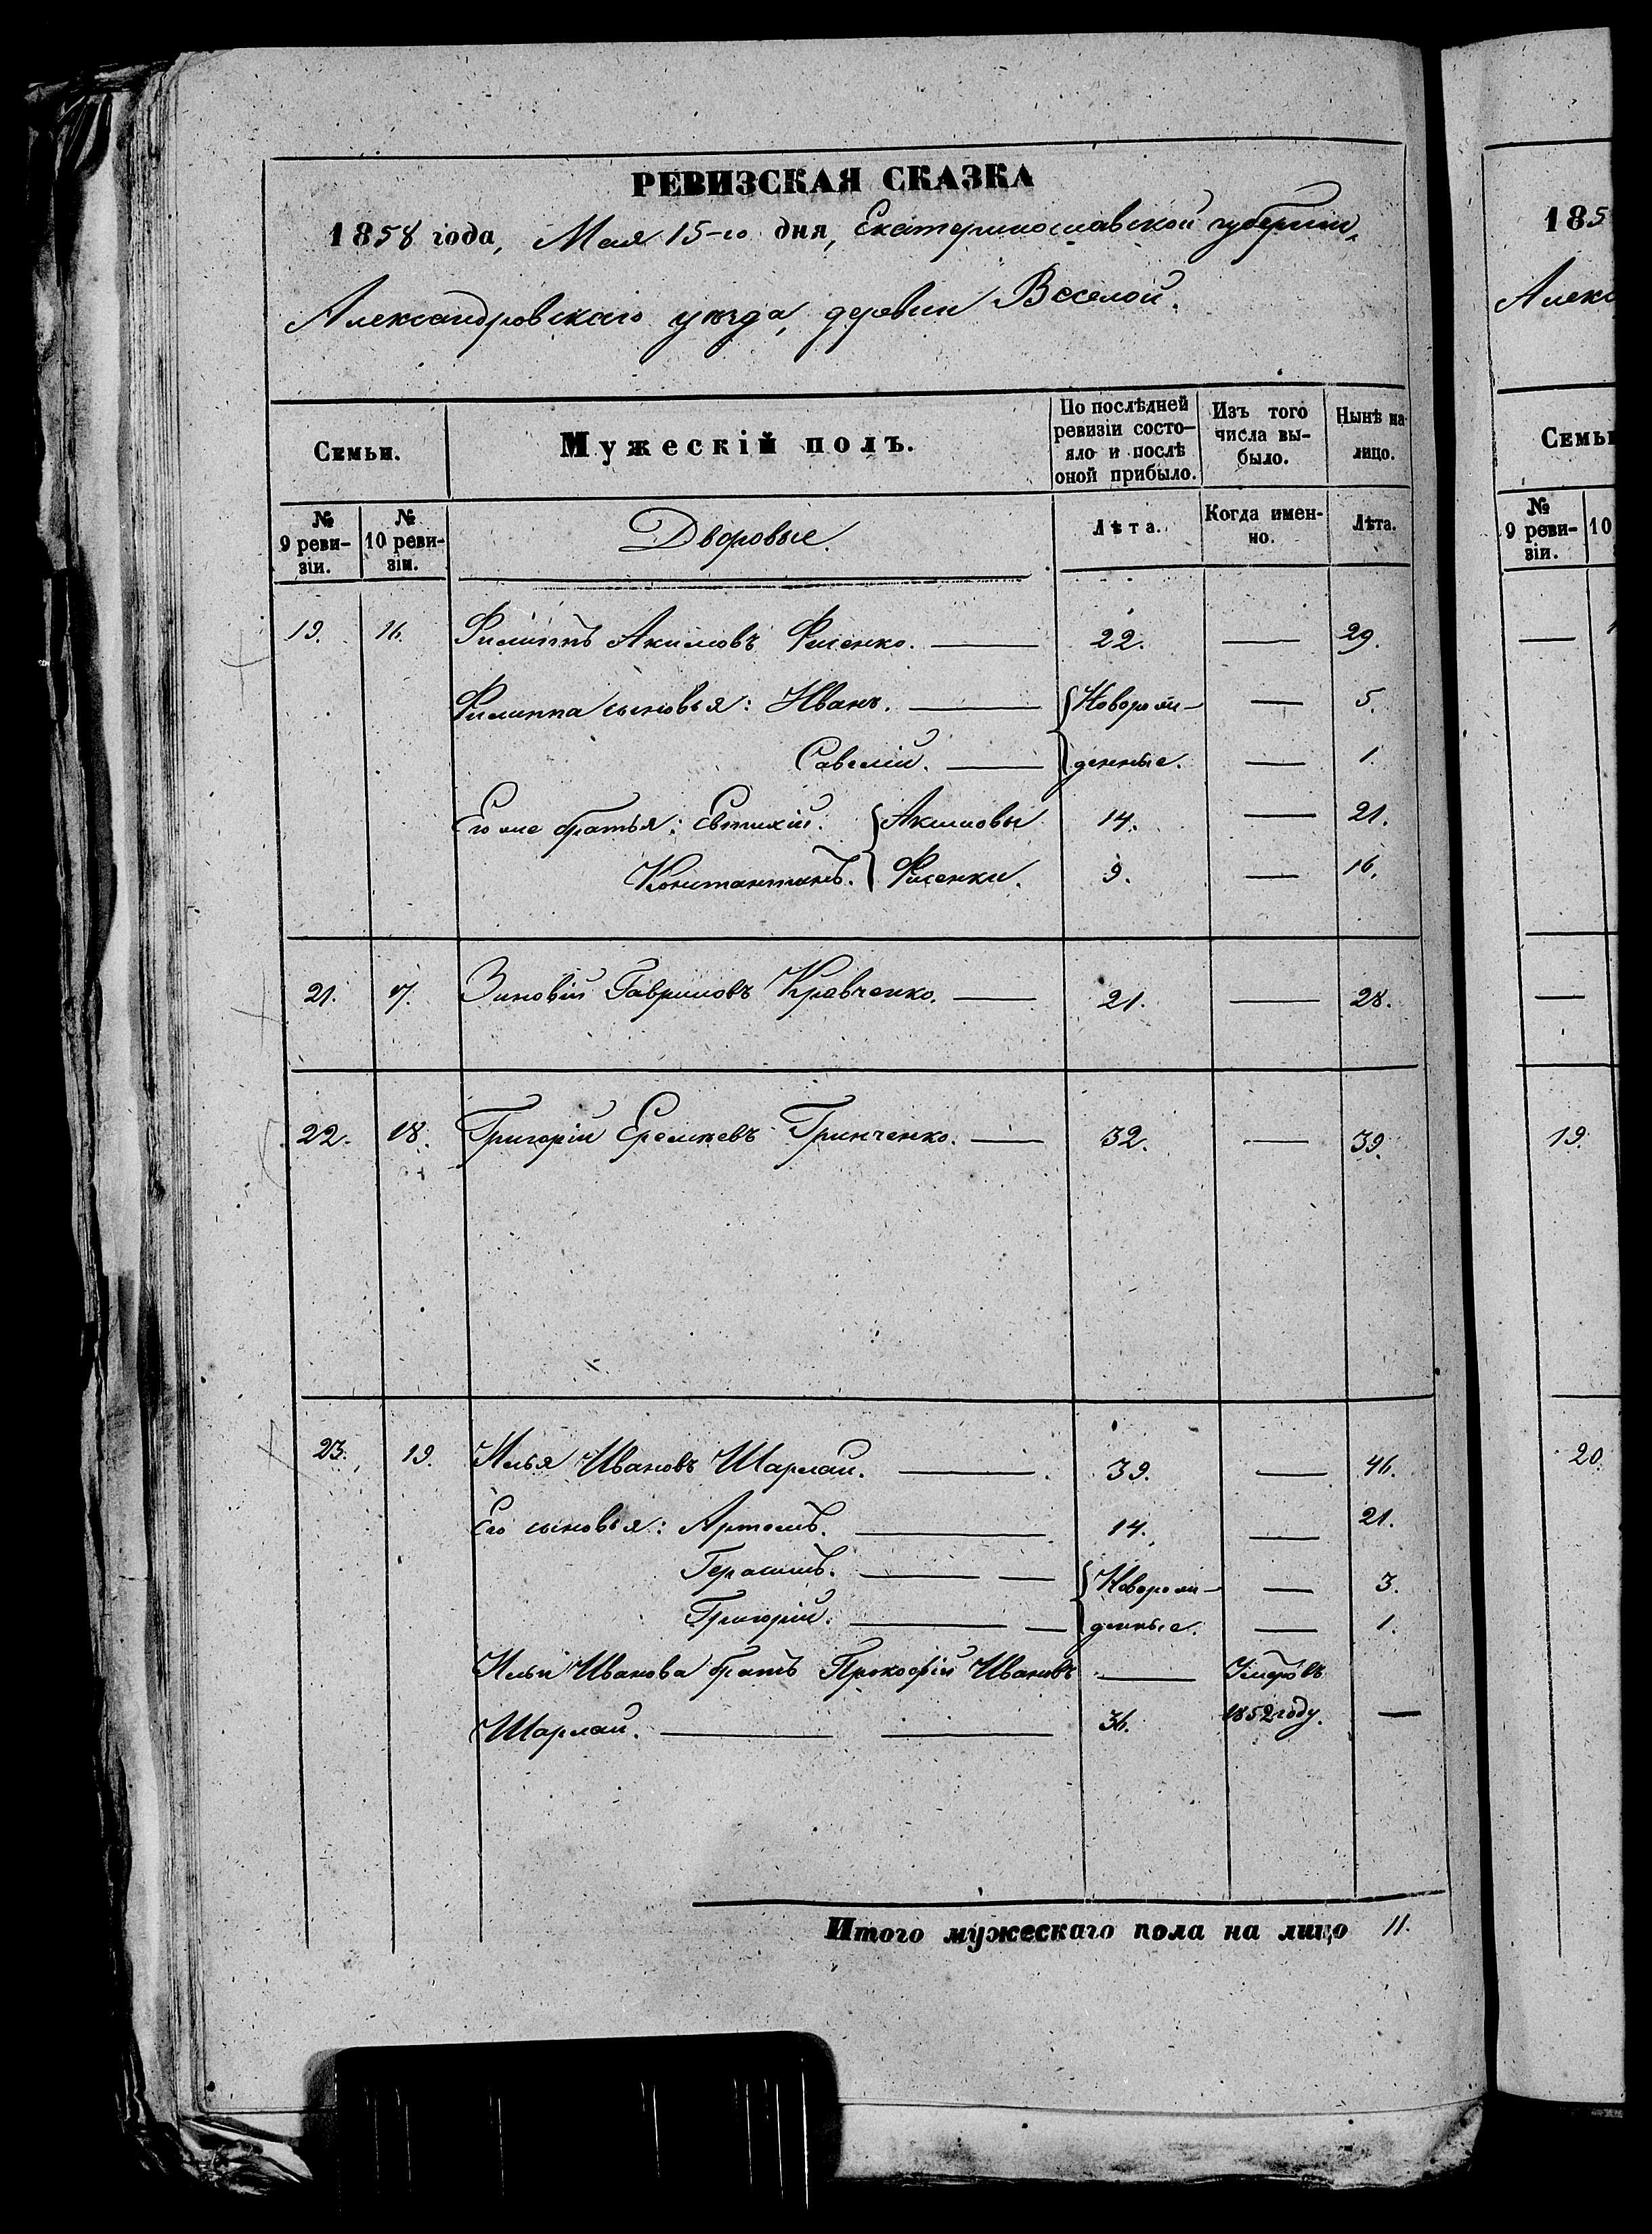 РЕВИЗСКАЯ СКАЗКА
1858 года, Мая 15-го дня, Екатеринославской губернии,
Александровскаго уѣзда, деревни Веселой.
Семьи. Мужескій полъ. По послѣдней ревизіи состо-яло и послѣ оной прибыло. Изъ того числа вы-было. Нынѣ на лицо.
№ 9 реви-зіи. № 10 реви-зіи. Дворовые. Лѣта. Когда имен-но. Лѣта.
19. 16. Филиппъ Акимовъ Фисенко. — 22. — 29.
Филиппа сыновья: Иванъ. — Новорож- — 5.
Савелій. — денные. — 1.
Его же братья: Евтихій. Акимовы 14. — 21.
Константинъ. Фисенки. 9. — 16.
21. 17. Зиновій Гавриловъ Кравченко. — 21. — 28.
22. 18. Григорій Еремѣевъ Гринченко. — 32. — 39.
23. 19. Илья Ивановъ Шарлай. — 39. — 46.
Его сыновья: Артемъ. — 14. — 21.
Герасимъ. — — Новорож- — 3.
Григорій. — — денные. — 1.
Ильи Иванова братъ Прокофій Ивановъ — Умеръ въ
Шарлай. — — 36. 1852 году. —
Итого мужескаго пола на лицо 11.
185
Алекс
Семьи
№ 9 реви-зіи. 10
—
—
19.
20.